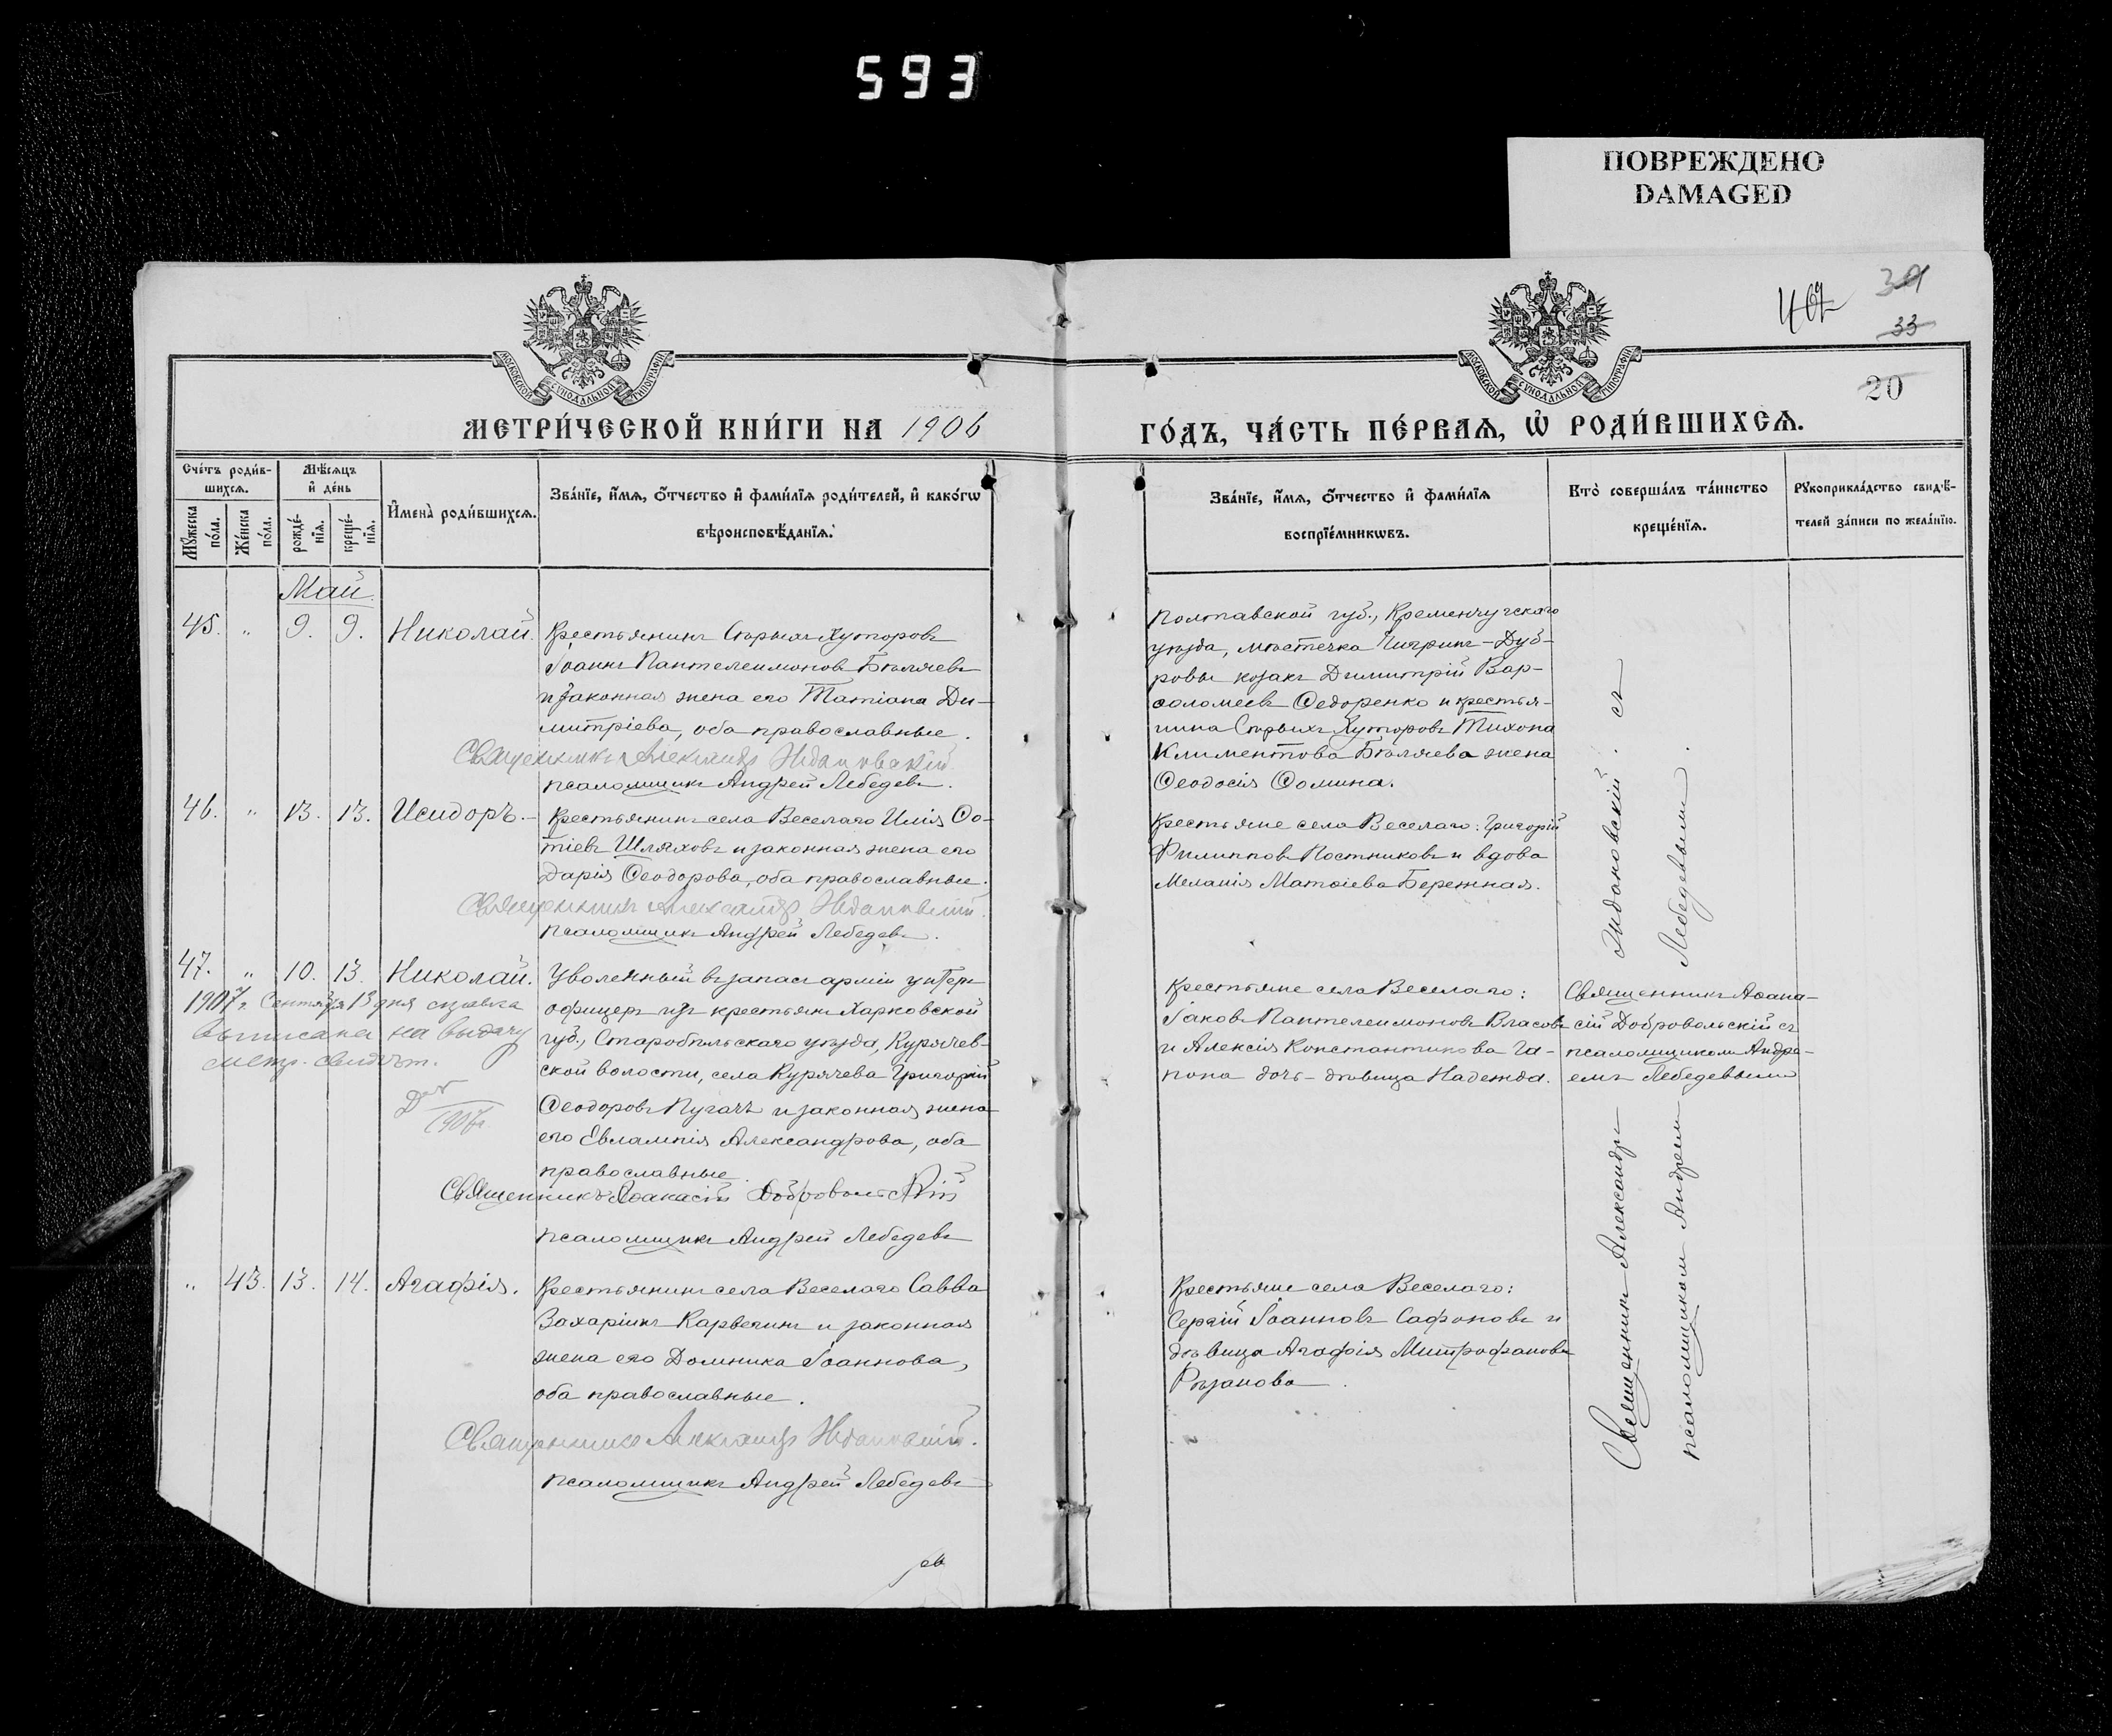 593
ПОВРЕЖДЕНО
DAMAGED
33
20
МОСКОВСКОЙ СѴНОДАЛЬНОЙ ТИПОГРАФІИ
МОСКОВСКОЙ СѴНОДАЛЬНОЙ ТИПОГРАФІИ
МЕТРИ́ЧЕСКОЙ КНИ́ГИ НА 1906
ГО́ДЪ, ЧА́СТЬ ПЕ́РВАЯ, Ѡ҆ РОДИ́ВШИХСЯ.
Сче́тъ роди́в-
шихся.
Мѣ́сяцъ
и҆ де́нь
Мꙋ́жеска по́ла.
Же́нска по́ла.
рожде́-
нїя.
креще́-
нїя.
И҆мена̀ роди́вшихся.
Зва́нїе, и҆́мя, ѻ҆́тчество и҆ фами́лїя роди́телей, и҆ како́гѡ
вѣроисповѣ́данїя.
Зва́нїе, и҆́мя, ѻ҆́тчество и҆ фами́лїя
воспрїе́мникѡвъ.
Кто̀ соверша́лъ та́инство
креще́нїя.
Рꙋкоприкла́дство свидѣ́-
телей за́писи по жела́нїю.
Май.
45. " 9. 9. Николай.
Крестьянинъ Старыхъ Хуторовъ
Іоаннъ Пантелеимоновъ Бѣляевъ
и законная жена его Татіана Ди-
митріева, оба православные.
Священникъ Александръ Ждановскій.
псаломщикъ Андрей Лебедевъ.
Полтавской губ., Кременчугскаго
уѣзда, мѣстечка Чигринъ-Дуб-
ровы козакъ Димитрій Вар-
ѳоломеевъ Ѳедоренко и крестья-
нина Старыхъ Хуторовъ Тихона
Климентова Бѣляева жена
Ѳеодосія Ѳомина.
46. " 13. 13. Исидоръ.
Крестьянинъ села Веселаго Илія Ѳо-
тіевъ Шляховъ и законная жена его
Дарія Ѳеодорова, оба православные.
Священникъ Александръ Ждановскій.
псаломщикъ Андрей Лебедевъ.
Крестьяне села Веселаго: Григорій
Филипповъ Постниковъ и вдова
Меланія Матѳіева Бережная.
47. " 10. 13. Николай.
1907 г. Сентября 13 дня справка
выписана на выдачу
метр. свидѣт.
1907 г.
Уволенный въ запасъ арміи унтеръ
офицеръ изъ крестьянъ Харковской
губ., Старобѣльскаго уѣзда, Курячев-
ской волости, села Курячева Григорій
Ѳеодоровъ Пугачъ и законная жена
его Евлампія Александрова, оба
православные.
Священникъ Аѳанасій Добровольскій
псаломщикъ Андрей Лебедевъ
Крестьяне села Веселаго:
Іаковъ Пантелеимоновъ Власовъ
и Алексія Константинова Га-
пона дочь-дѣвица Надежда.
Священникъ Аѳана-
сій Добровольскій съ
псаломщикомъ Андре-
емъ Лебедевымъ
" 43. 13. 14. Агафія.
Крестьянинъ села Веселаго Савва
Захаріинъ Карвечинъ и законная
жена его Домника Іоаннова,
оба православные.
Священникъ Александръ Ждановскій.
псаломщикъ Андрей Лебедевъ
Крестьяне села Веселаго:
Сергій Іоанновъ Сафоновъ и
дѣвица Агафія Митрофанова
Рѣзанова.
Священникъ Александръ Ждановскій съ
псаломщикомъ Андреемъ Лебедевымъ.